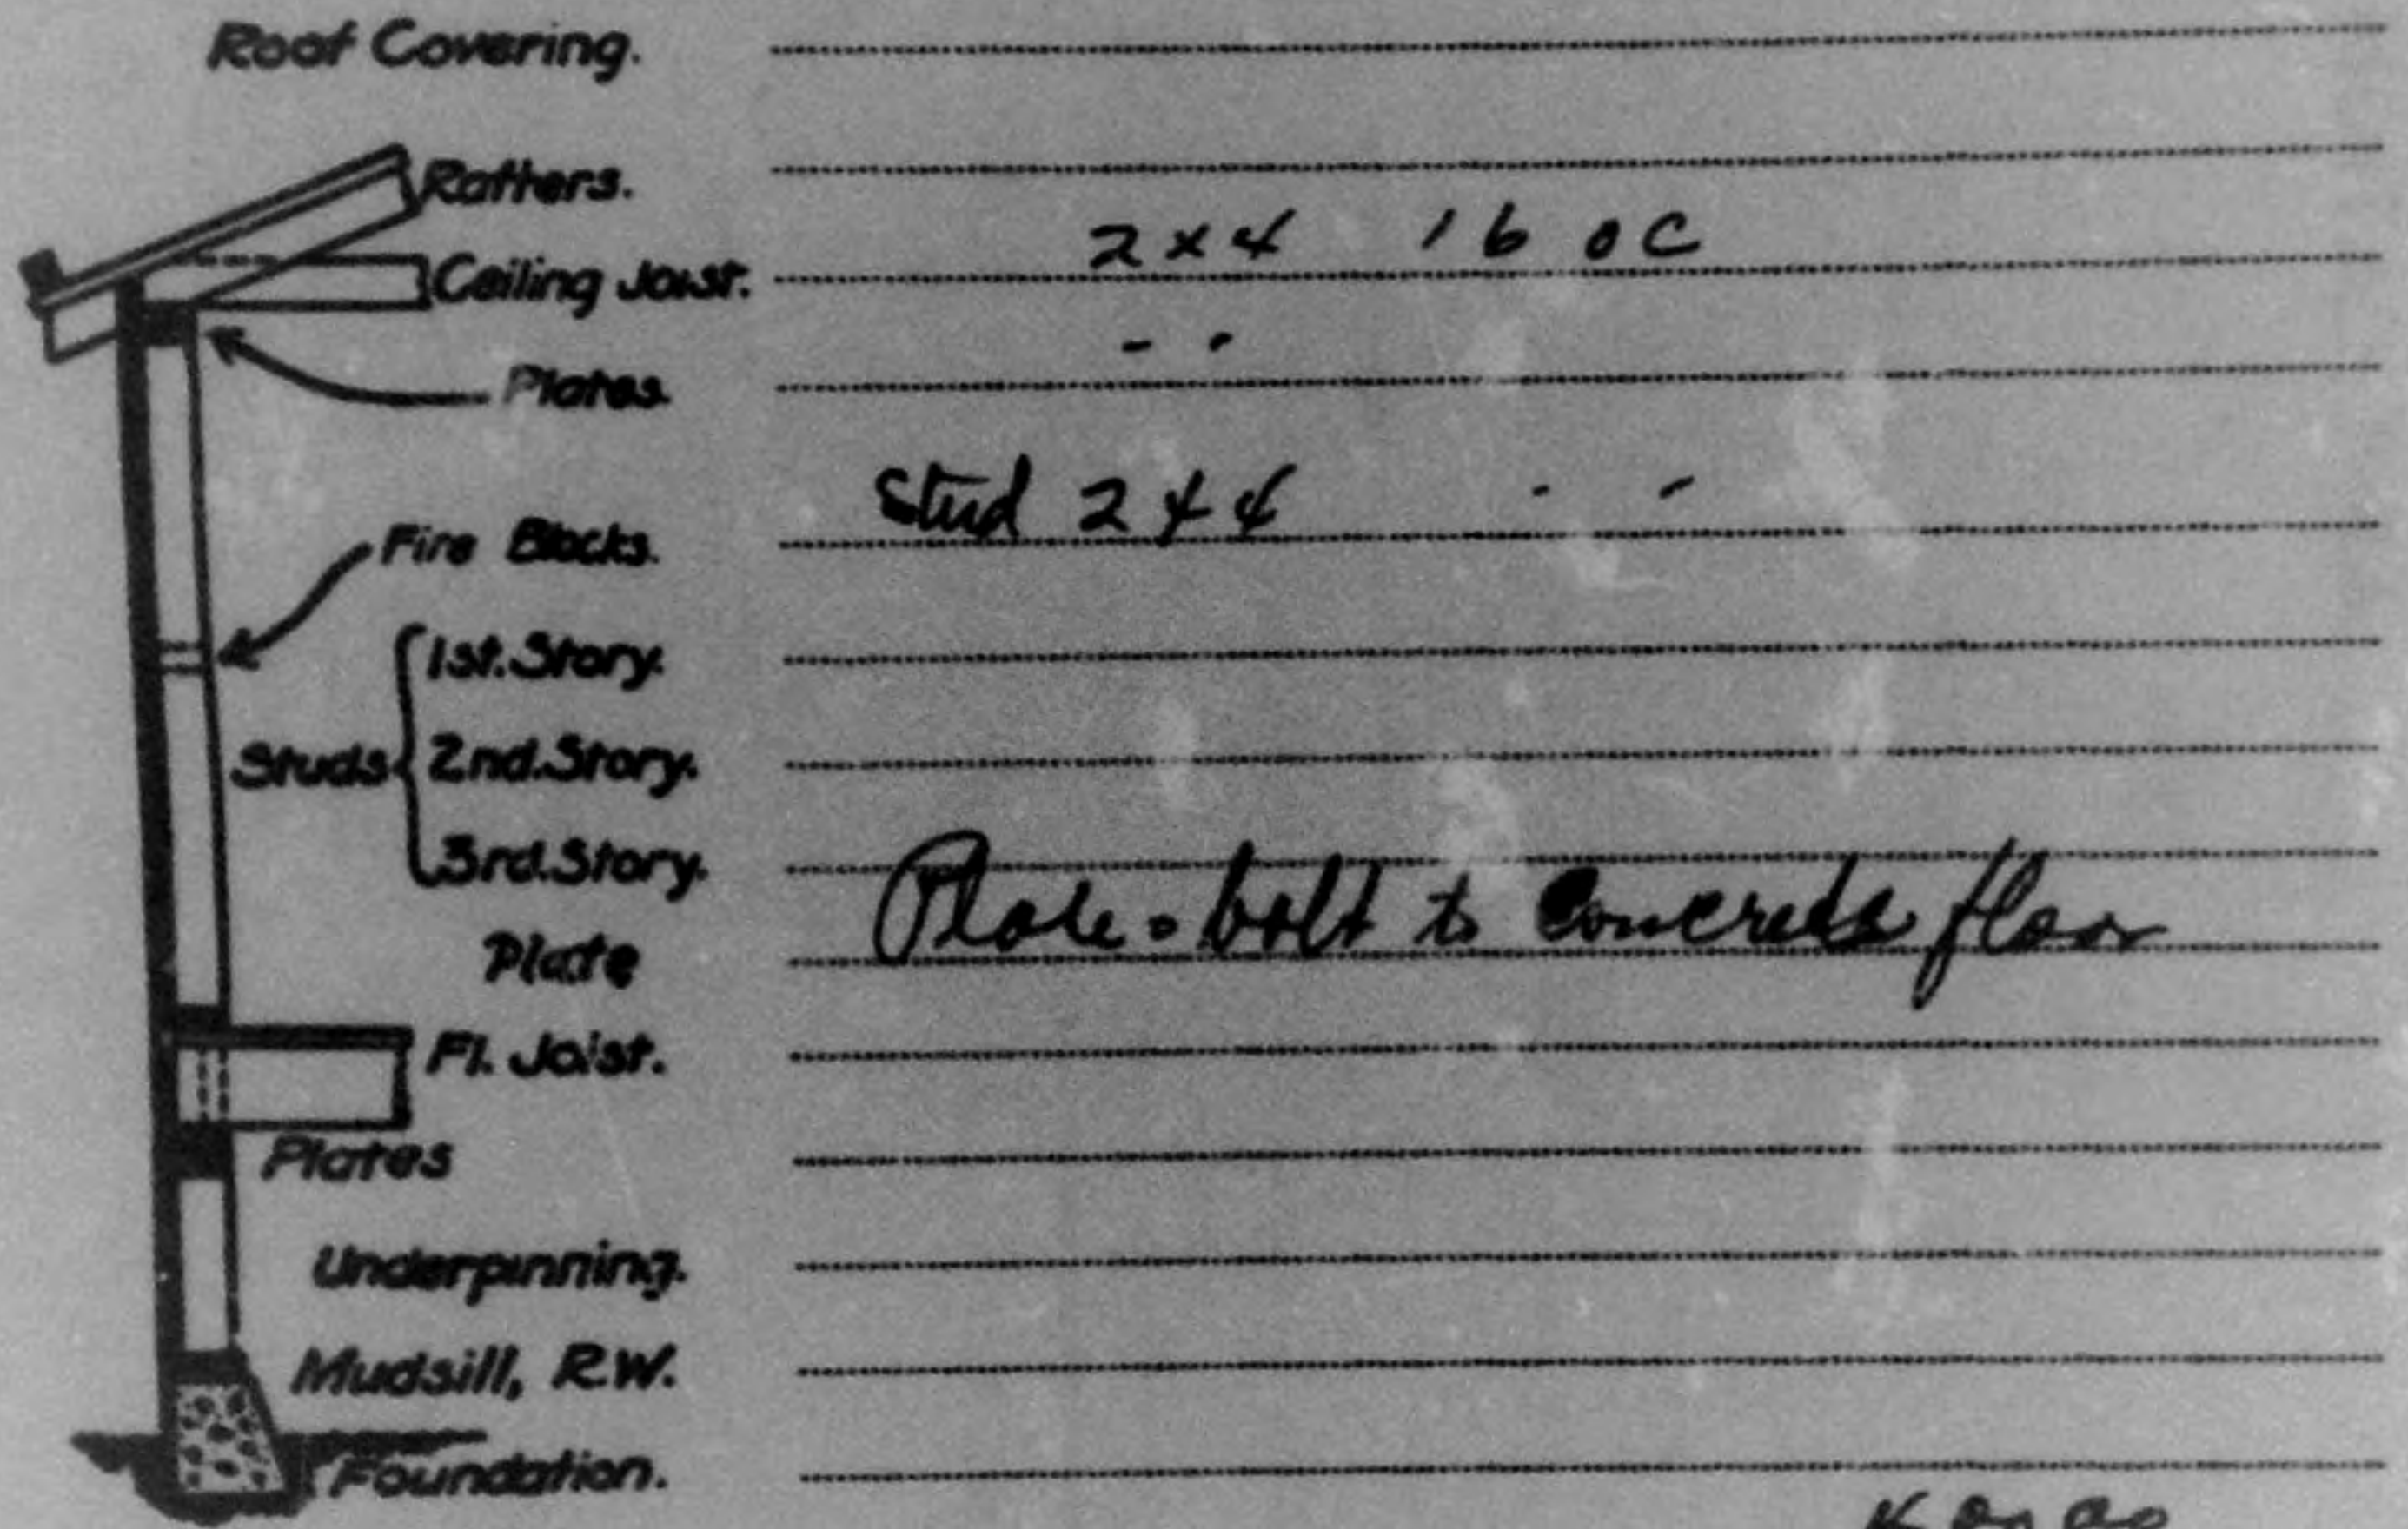 Roof Covering.
Rafters.
Ceiling Joist. 2x4 16 OC
Plates - -
Fire Blocks. Stud 2x4 - -
1st. Story.
Studs 2nd. Story.
3rd. Story.
Plate Plate - bolt to Concrete floor
Fl. Joist.
Plates
Underpinning.
Mudsill, R.W.
Foundation.